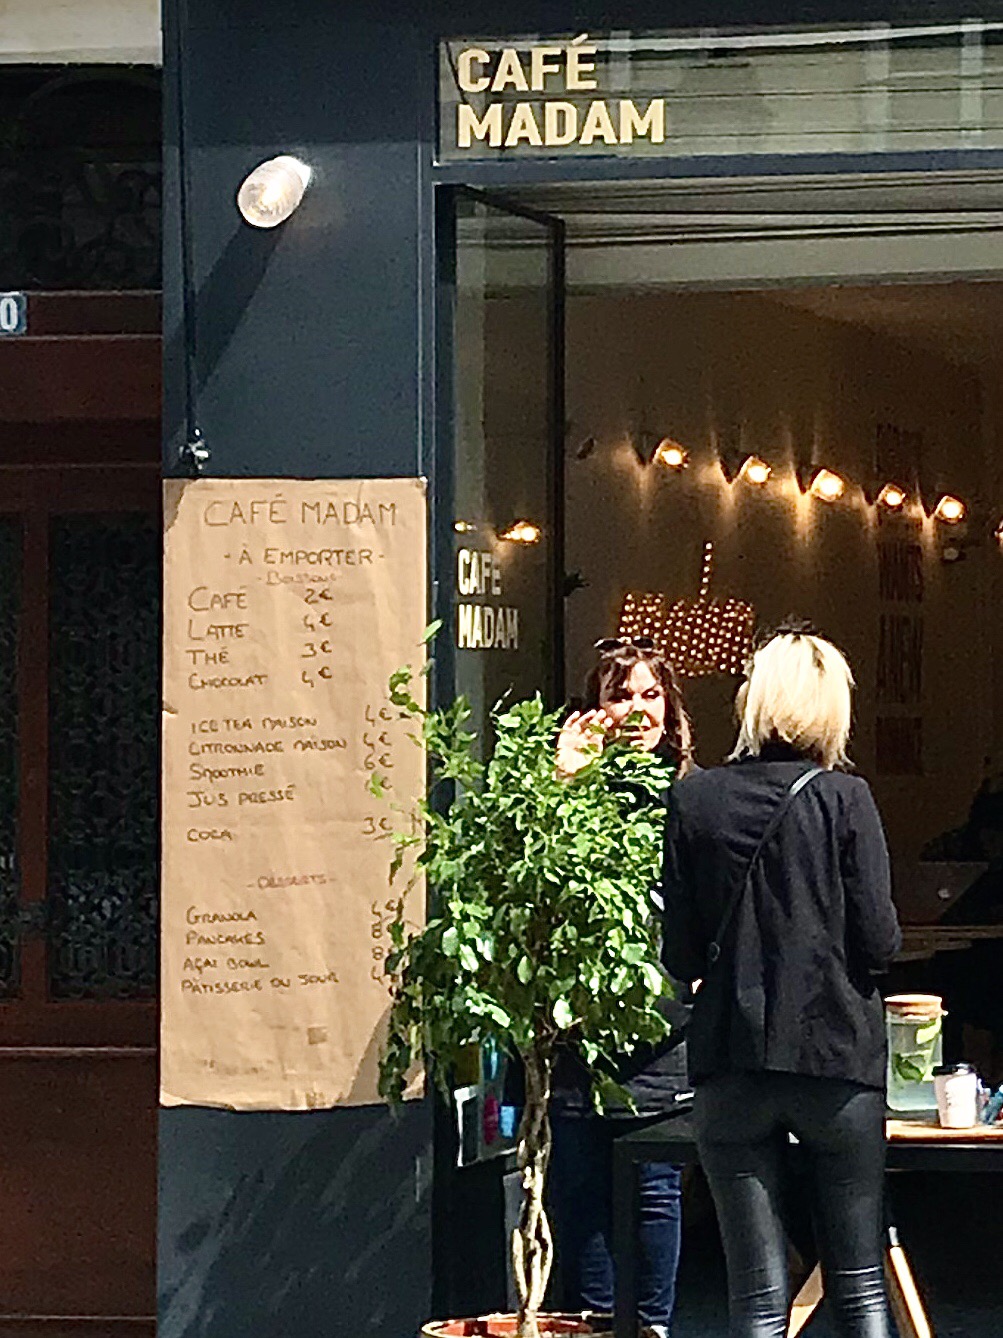 CAFÉ
MADAM
0
CAFÉ MADAM
- À EMPORTER -
- Boissons -
CAFÉ 2€
LATTE 4€
THÉ 3€
CHOCOLAT 4€
ICE TEA MAISON 4€
CITRONNADE MAISON 4€
SMOOTHIE 6€
JUS PRESSÉ €
COCA 3€
- DESSERTS -
GRANOLA 4€
PANCAKES 8€
AÇAI BOWL 8
PÂTISSERIE DU JOUR 4€
CAFÉ
MADAM